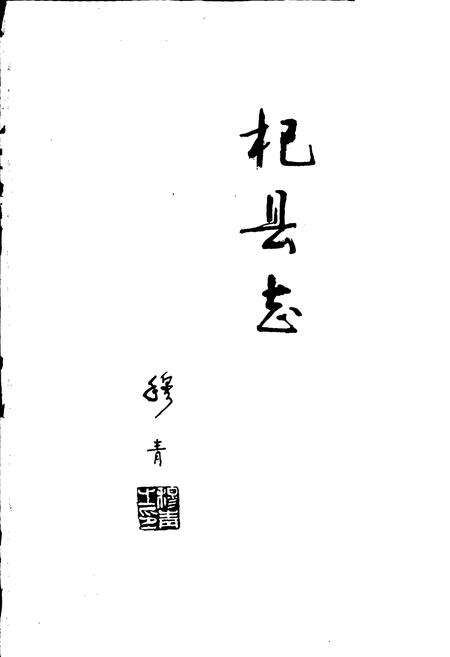 杞县志
穆青